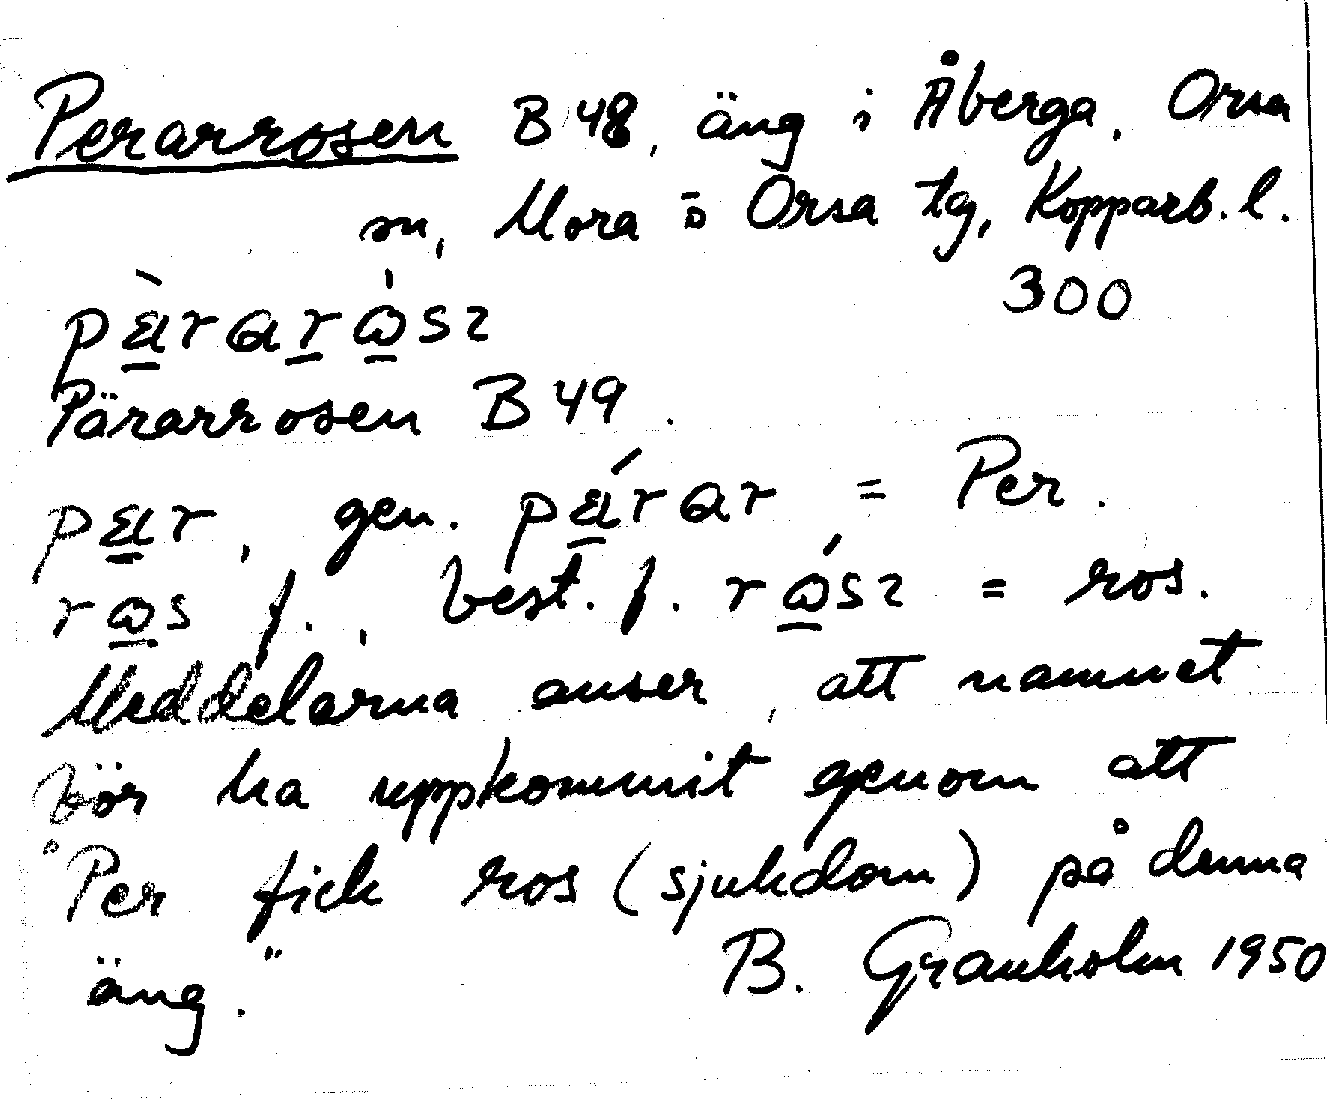 Perarrosen B 48, äng i Åberga, Orsa
sn, Mora o Orsa tg, Kopparb. l.
300
Pärarrosen B 49.
gen. = Per.
f., best. f. = ros.
Meddelarna anser, att namnet
bör ha uppkommit genom att
"Per fick ros (sjukdom) på denna
äng."
B. Granholm 1950